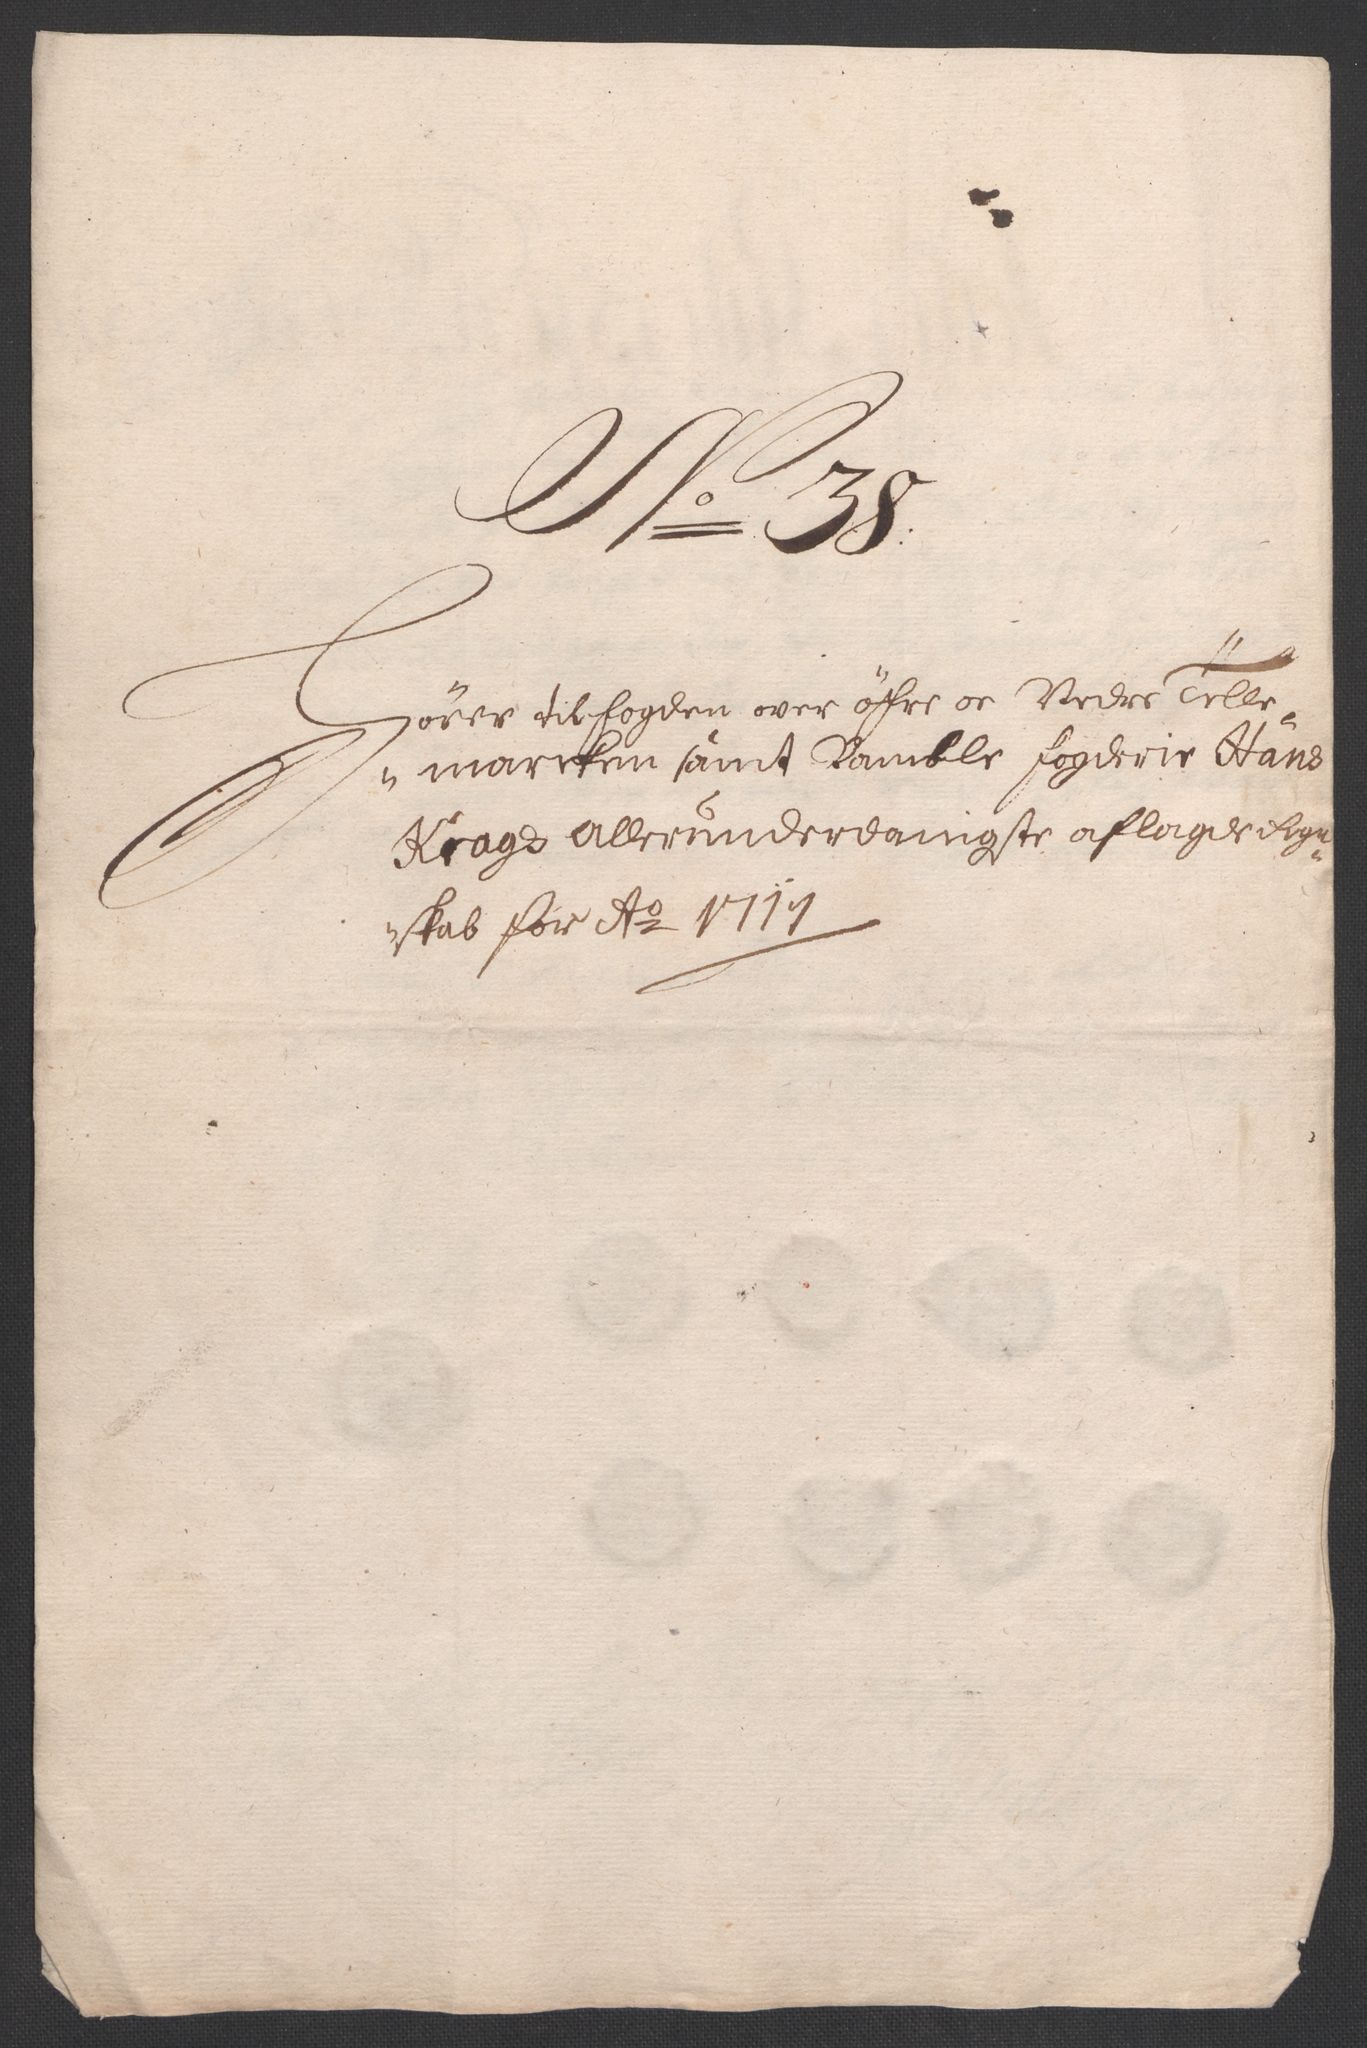 No 38.
Hörer til fogden over öffre oc Nedre Telle-
-marcken samt Bamble fogderie Hans
Krags Allerunderdanigste aflagde Regn-
-skab for Ao 1717